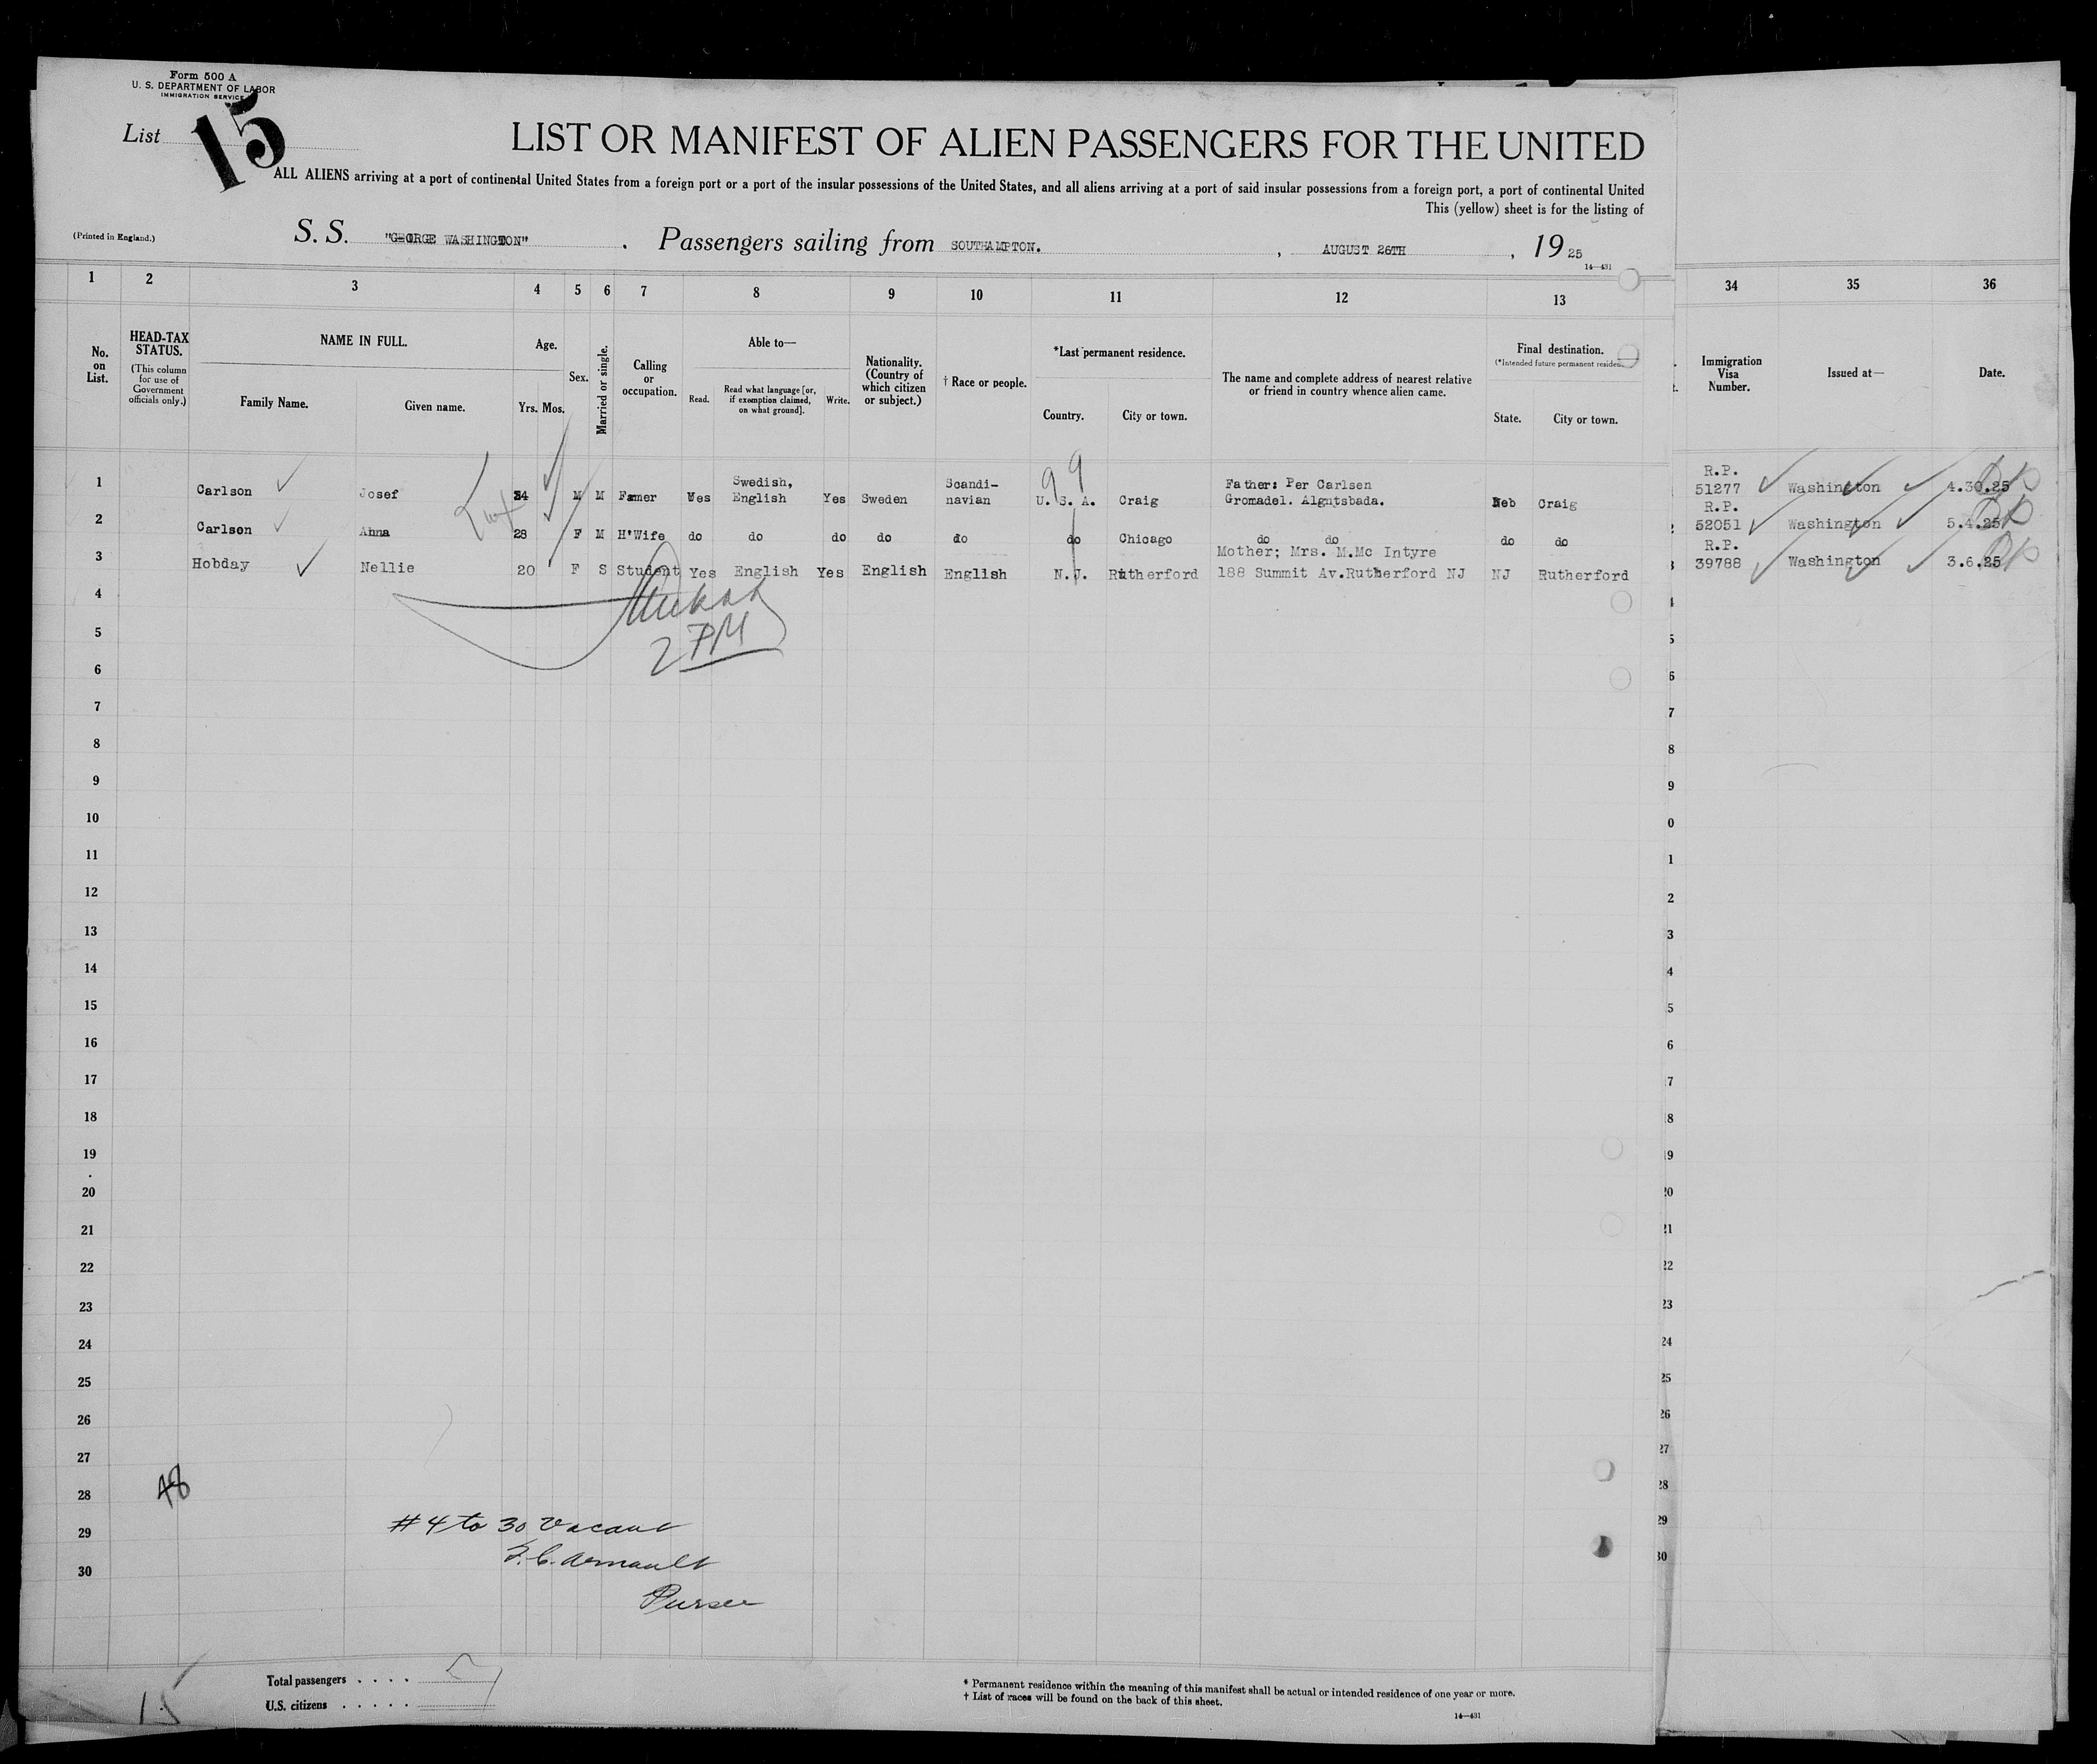 Form 500 A
U. S. DEPARTMENT OF LABOR
IMMIGRATION SERVICE
List 15
LIST OR MANIFEST OF ALIEN PASSENGERS FOR THE UNITED
ALL ALIENS arriving at a port of continental United States from a foreign port or a port of the insular possessions of the United States, and all aliens arriving at a port of said insular possessions from a foreign port, a port of continental United
This (yellow) sheet is for the listing of
(Printed in England.)
S. S. "GEORGE WASHINGTON" . Passengers sailing from SOUTHAMPTON. , AUGUST 26TH , 19 25
14—431
1 2 3 4 5 6 7 8 9 10 11 12 13 34 35 36
No. on List.
HEAD-TAX STATUS.
(This column for use of Government officials only.)
NAME IN FULL.
Family Name. Given name.
Age.
Yrs. Mos.
Sex.
Married or single.
Calling or occupation.
Able to—
Read. Read what language [or, if exemption claimed, on what ground]. Write.
Nationality. (Country of which citizen or subject.)
† Race or people.
*Last permanent residence.
Country. City or town.
The name and complete address of nearest relative or friend in country whence alien came.
Final destination.
(*Intended future permanent residence
State. City or town.
Immigration Visa Number.
Issued at—
Date.
99
1 Carlson Josef 34 M M Famer Yes Swedish, English Yes Sweden Scandi-navian U. S. A. Craig Father: Per Carlsen Gromadel. Algutsbada. Neb Craig R.P. 51277 Washington 4.30.25
2 Carlson Anna 28 F M H'Wife do do do do do do Chicago do do do do R.P. 52051 Washington 5.4.25
3 Hobday Nellie 20 F S Student Yes English Yes English English N.J. Rutherford Mother; Mrs. M.Mc Intyre 188 Summit Av.Rutherford NJ NJ Rutherford R.P. 39788 Washington 3.6.25
4
2 PM
5
6
7
8
9
10
11
12
13
14
15
16
17
18
19
20
21
22
23
24
25
26
27
28
48
29
30
#4 to 30 Vacant
F. C. Arnault
Purser
Total passengers . . . .
U.S. citizens . . . . .
15
* Permanent residence within the meaning of this manifest shall be actual or intended residence of one year or more.
† List of races will be found on the back of this sheet.
14—431